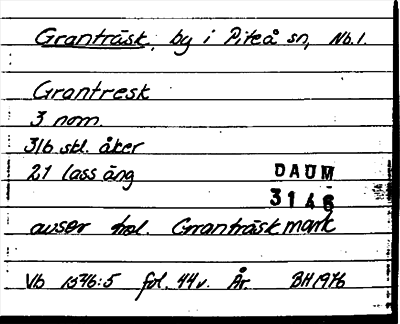 Granträsk, by i Piteå sn, Nb.l.
Grantresk
3 nom.
3/6 skl. åker
21 lass äng
DAUM
3146
avser trol. Granträskmark
Vb 1546:5 fol. 44v. År. BH 1976